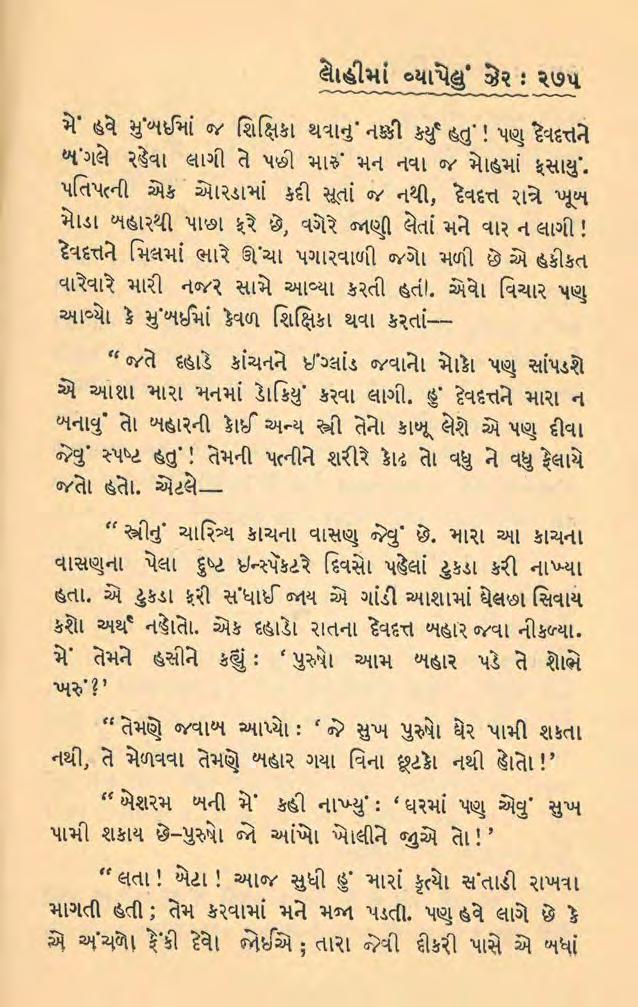 લોહીમાં વ્યાપેલું ઝેર : ૨૭૫
મેં હવે મુંબઈમાં જ શિક્ષિકા થવાનું નક્કી કર્યું હતું ! પણ દેવદત્તને
બંગલે રહેવા લાગી તે પછી મારું મન નવા જ મોહમાં ફસાયું.
પતિપત્ની એક ઓરડામાં કદી સૂતાં જ નથી, દેવદત્ત રાત્રે ખૂબ
મોડા બહારથી પાછા ફરે છે, વગેરે જાણી લેતાં મને વાર ન લાગી !
દેવદત્તને મિલમાં ભારે ઊંચા પગારવાળી જગો મળી છે એ હકીકત
વારેવારે મારી નજર સામે આવ્યા કરતી હતી. એવો વિચાર પણ
આવ્યો કે મુંબઈમાં કેવળ શિક્ષિકા થવા કરતાં—
“ જતે દહાડે કાંચનને ઈંગ્લાંડ જવાનો મોકો પણ સાંપડશે
એ આશા મારા મનમાં ડોકિયું કરવા લાગી. હું દેવદત્તને મારા ન
બનાવું તો બહારની કોઈ અન્ય સ્ત્રી તેનો કાબૂ લેશે એ પણ દીવા
જેવું સ્પષ્ટ હતું ! તેમની પત્નીને શરીરે કોઢ તો વધુ ને વધુ ફેલાયે
જતો હતો. એટલે—
“ સ્ત્રીનું ચારિત્ર્ય કાચના વાસણ જેવું છે. મારા આ કાચના
વાસણના પેલા દુષ્ટ ઇન્સ્પેંકટરે દિવસો પહેલાં ટુકડા કરી નાખ્યા
હતા. એ ટુકડા ફરી સંધાઈ જાય એ ગાંડી આશામાં ઘેલછા સિવાય
કશો અર્થ નહોતો. એક દહાડો રાતના દેવદત્ત બહાર જવા નીકળ્યા.
મેં તેમને હસીને કહ્યું : ‘ પુરુષો આમ બહાર પડે તે શોભે
ખરું ?’
“ તેમણે જવાબ આપ્યો : ‘ જે સુખ પુરુષો ઘેર પામી શકતા
નથી, તે મેળવવા તેમણે બહાર ગયા વિના છૂટકો નથી હોતો !’
“ બેશરમ બની મેં કહી નાખ્યું : ‘ ઘરમાં પણ એવું સુખ
પામી શકાય છે–પુરુષો જો આંખો ખોલીને જુએ તો ! ’
“ લતા ! બેટા ! આજ સુધી હું મારાં કૃત્યો સંતાડી રાખવા
માગતી હતી ; તેમ કરવામાં મને મજા પડતી. પણ હવે લાગે છે કે
એ અંચળો ફેંકી દેવો જોઈએ ; તારા જેવી દીકરી પાસે એ બધાં